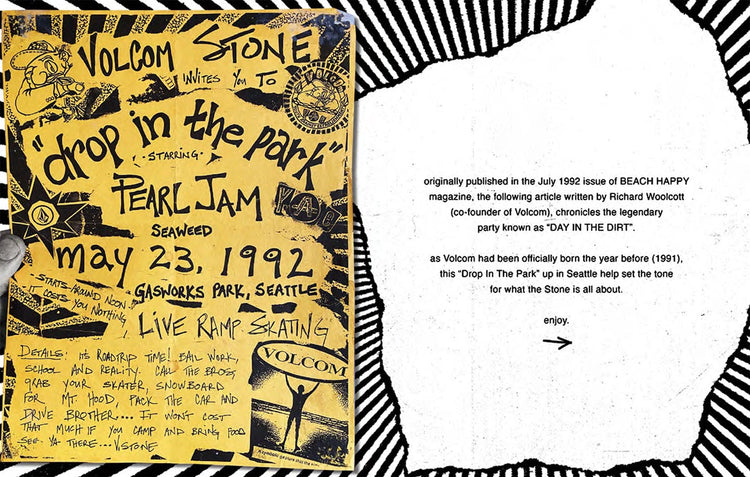 VOLCOM STONE
INVITES YOU TO
"drop in the park"
• STARRING •
PEARL JAM
SEAWEED
may 23, 1992
GASWORKS PARK, SEATTLE
STARTS AROUND NOON
IT COSTS YOU NOTHING
LIVE RAMP SKATING
DETAILS: IT'S ROADTRIP TIME! BAIL WORK,
SCHOOL AND REALITY. CALL THE BROS,
GRAB YOUR SKATER, SNOWBOARD
FOR MT. HOOD, PACK THE CAR AND
DRIVE BROTHER.... IT WONT COST
THAT MUCH IF YOU CAMP AND BRING FOOD
SEE YA THERE...V.STONE
VOLCOM
originally published in the July 1992 issue of BEACH HAPPY
magazine, the following article written by Richard Woolcott
(co-founder of Volcom), chronicles the legendary
party known as "DAY IN THE DIRT".
as Volcom had been officially born the year before (1991),
this "Drop In The Park" up in Seattle help set the tone
for what the Stone is all about.
enjoy.